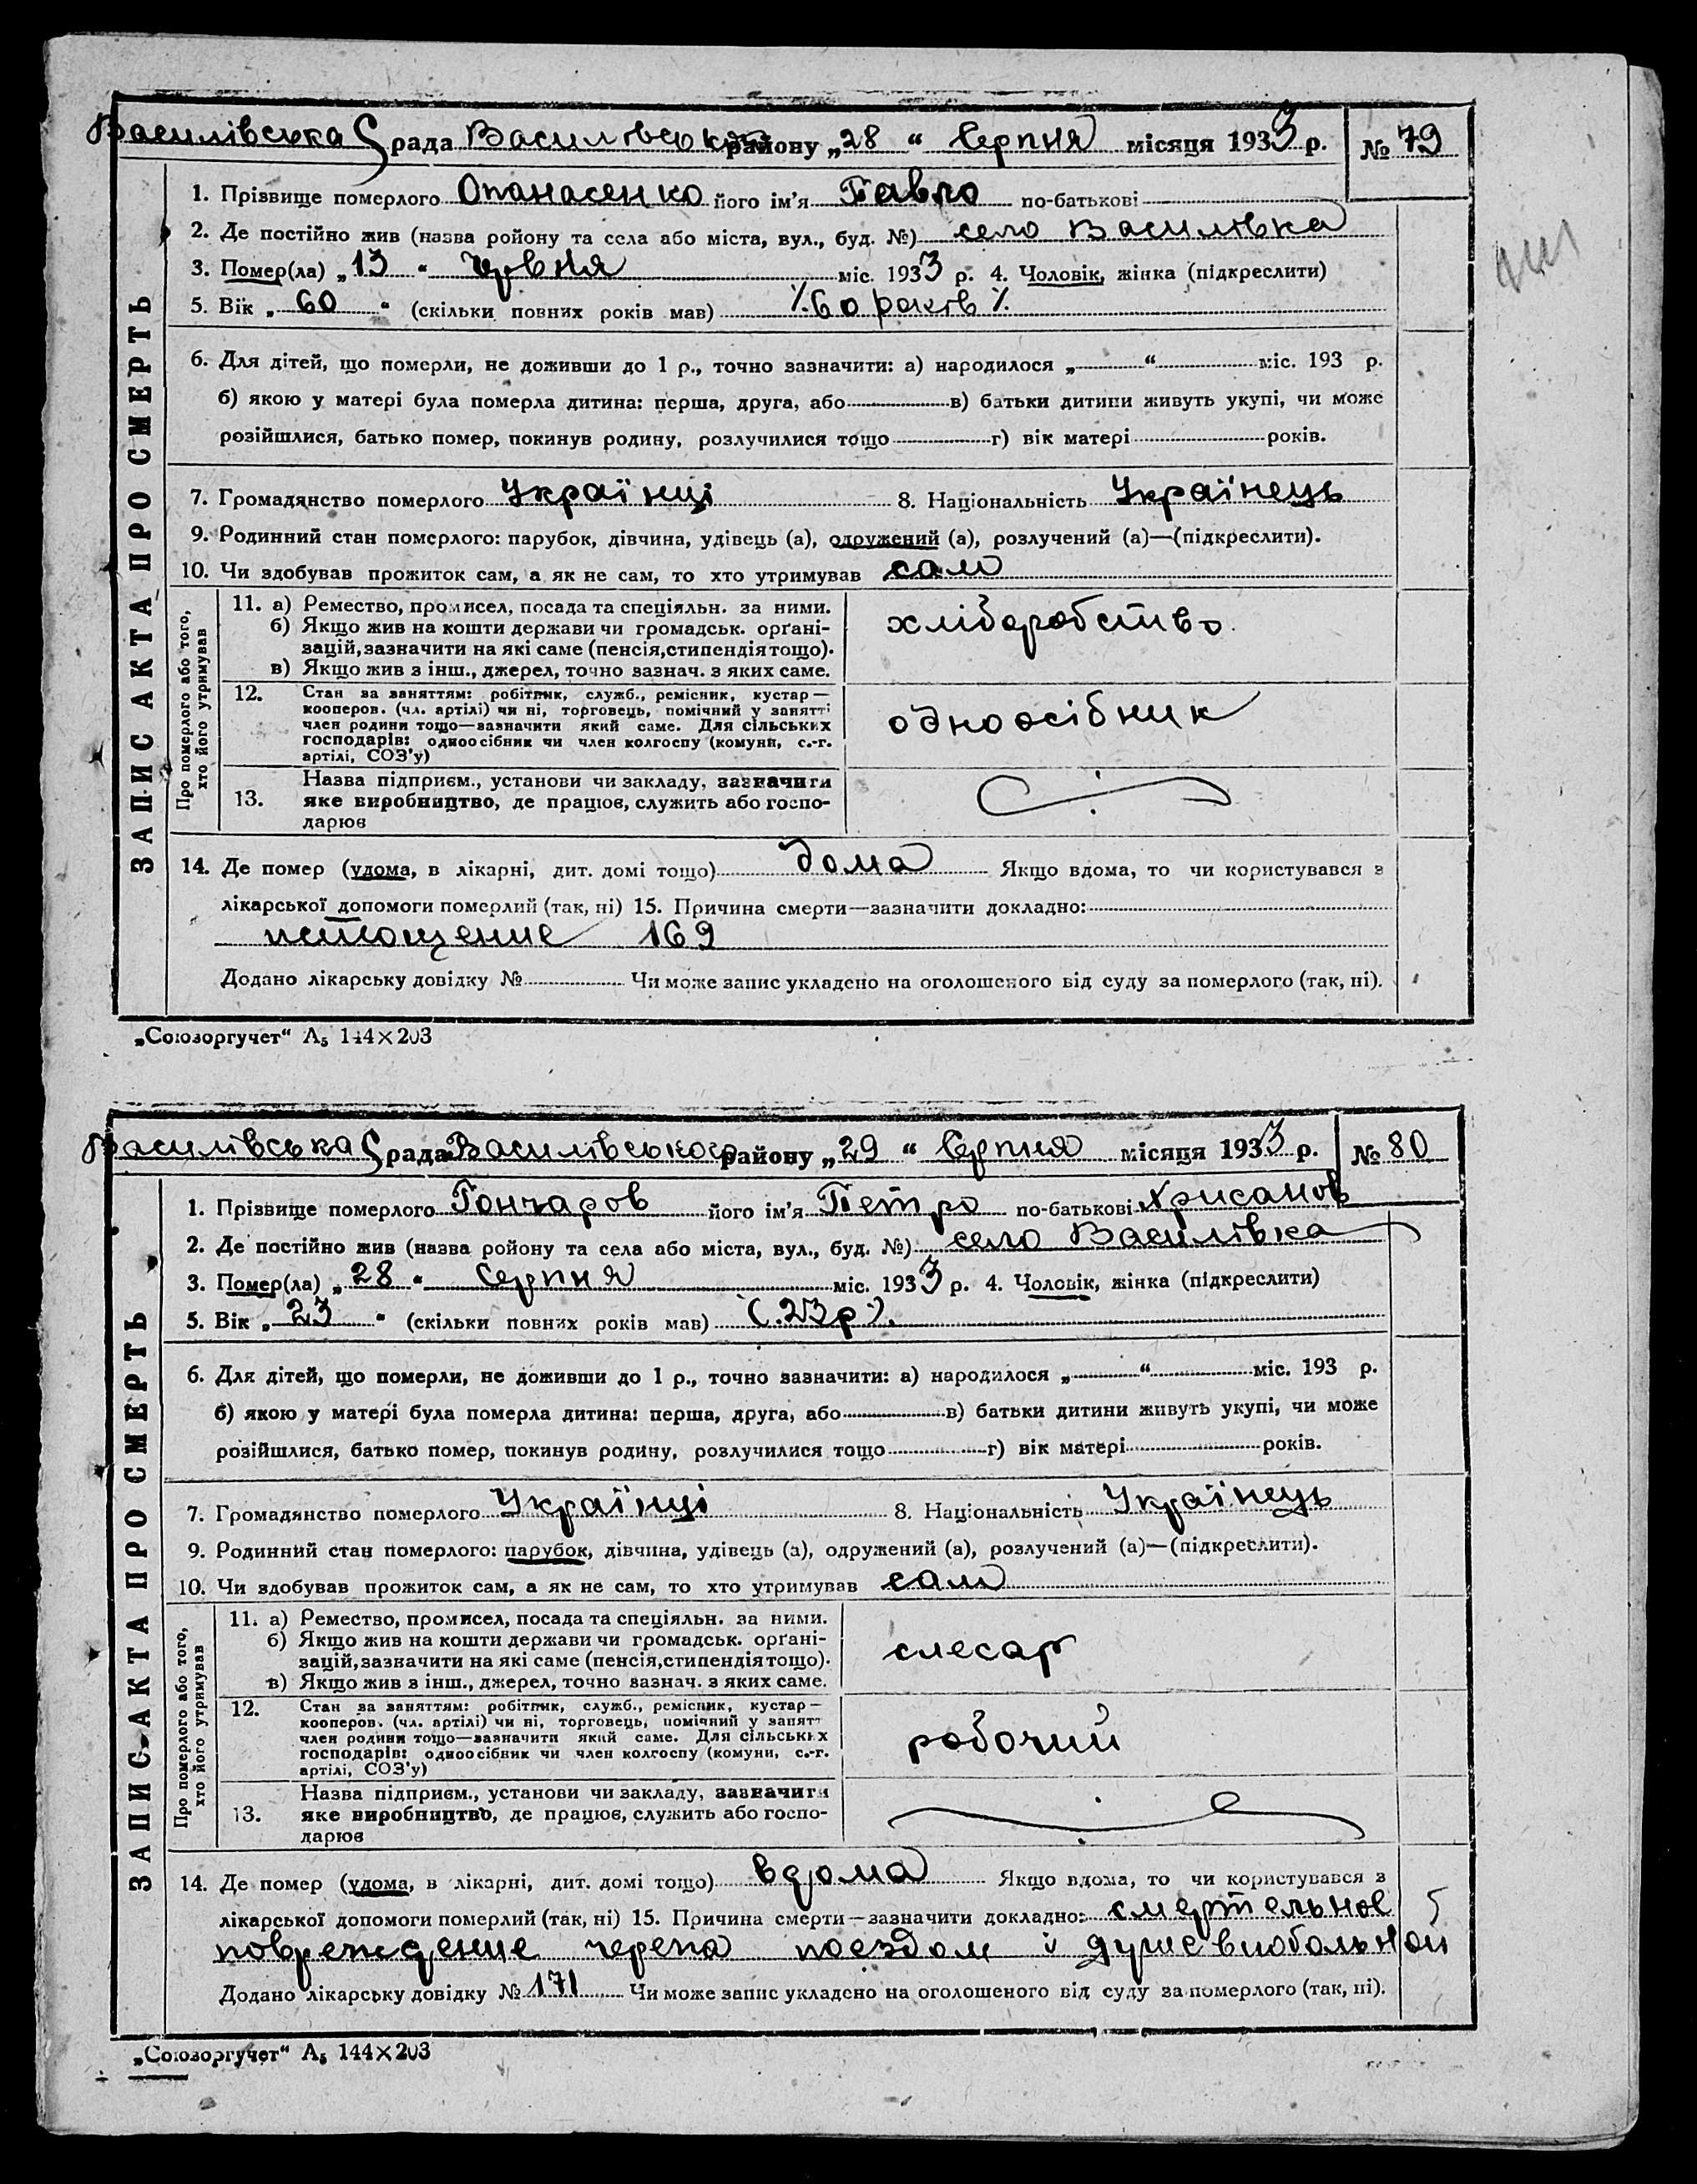 Василівська С рада Василівського району „28“ Серпня місяця 1933 р. № 79
1. Прізвище померлого Опанасенко його ім'я Павло по-батькові
2. Де постійно жив (назва ройону та села або міста, вул., буд. №) село Василівка
3. Помер(ла) „13“ Червня міс. 1933 р. 4. Чоловік, жінка (підкреслити)
5. Вік „60“ (скільки повних років мав) /.60 років/.
6. Для дітей, що померли, не доживши до 1 р., точно зазначити: а) народилося „ “ міс. 193 р.
б) якою у матері була померла дитина: перша, друга, або в) батьки дитини живуть укупі, чи може
розійшлися, батько помер, покинув родину, розлучилися тощо г) вік матері років.
7. Громадянство померлого Українці 8. Національність Українець
9. Родинний стан померлого: парубок, дівчина, удівець (а), одружений (а), розлучений (а)—(підкреслити).
10. Чи здобував прожиток сам, а як не сам, то хто утримував сам
ЗАПИС АКТА ПРО СМЕРТЬ
Про померлого або того,
хто його утримував
11. а) Ремество, промисел, посада та спеціяльн. за ними.
б) Якщо жив на кошти держави чи громадськ. орґані-
зацій, зазначити на які саме (пенсія, стипендія тощо).
в) Якщо жив з інш., джерел, точно зазнач. з яких саме.
хліборобство
12. Стан за заняттям: робітник, служб., ремісник, кустар—
кооперов. (чл. артілі) чи ні, торговець, помічний у занятті
член родини тощо—зазначити який саме. Для сільських
господарів: одноосібник чи член колгоспу (комуни, с.-г.
артілі, СОЗ'у)
одноосібник
13. Назва підприєм., установи чи закладу, зазначити
яке виробництво, де працює, служить або госпо-
дарює
14. Де помер (удома, в лікарні, дит. домі тощо) дома Якщо вдома, то чи користувався з
лікарської допомоги померлий (так, ні) 15. Причина смерти—зазначити докладно:
истощение 169
Додано лікарську довідку № Чи може запис укладено на оголошеного від суду за померлого (так, ні).
„Союзоргучет“ А₅ 144×203
Василівська С рада Василівського району „29“ Серпня місяця 1933 р. № 80
1. Прізвище померлого Гончаров його ім'я Петро по-батькові Хрисанов
2. Де постійно жив (назва ройону та села або міста, вул., буд. №) село Василівка
3. Помер(ла) „28“ Серпня міс. 1933 р. 4. Чоловік, жінка (підкреслити)
5. Вік „23“ (скільки повних років мав) (.23 р.).
6. Для дітей, що померли, не доживши до 1 р., точно зазначити: а) народилося „ “ міс. 193 р.
б) якою у матері була померла дитина: перша, друга, або в) батьки дитини живуть укупі, чи може
розійшлися, батько помер, покинув родину, розлучилися тощо г) вік матері років.
7. Громадянство померлого Українці 8. Національність Українець
9. Родинний стан померлого: парубок, дівчина, удівець (а), одружений (а), розлучений (а)—(підкреслити).
10. Чи здобував прожиток сам, а як не сам, то хто утримував сам
ЗАПИС АКТА ПРО СМЕРТЬ
Про померлого або того,
хто його утримував
11. а) Ремество, промисел, посада та спеціяльн. за ними.
б) Якщо жив на кошти держави чи громадськ. орґані-
зацій, зазначити на які саме (пенсія, стипендія тощо).
в) Якщо жив з інш., джерел, точно зазнач. з яких саме.
слесар
12. Стан за заняттям: робітник, служб., ремісник, кустар—
кооперов. (чл. артілі) чи ні, торговець, помічний у занятт
член родини тощо—зазначити який саме. Для сільських
господарів: одноосібник чи член колгоспу (комуни, с.-г.
артілі, СОЗ'у)
робочий
13. Назва підприєм., установи чи закладу, зазначити
яке виробництво, де працює, служить або госпо-
дарює
14. Де помер (удома, в лікарні, дит. домі тощо) вдома Якщо вдома, то чи користувався з
лікарської допомоги померлий (так, ні) 15. Причина смерти—зазначити докладно: смертельное
повреждение черепа поездом і душевнобольной
Додано лікарську довідку № 171 Чи може запис укладено на оголошеного від суду за померлого (так, ні).
„Союзоргучет“ А₅ 144×203